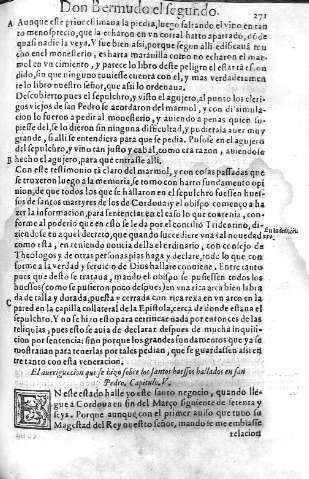 Don Bermudo el segundo.
271
A Aunque este prior estimaua la piedra, luego faltando el vino en tan
to menosprecio, que la echaron en vn corral harto apartado, dõ de
quasi nadie la veya. Y fue bien assi, porque segun alli edificauã mu
cho en el monesterio, es harta marauilla como no echaron el mar-
mol en vn cimiento, y parece lo libro deste peligro el estar tã escon
dido, sin que ninguno tuuiesse cuenta con el, y mas verdaderamen
te lo libro nuestro señor, que assi lo ordenaua.
Descubierto pues el sepulchro, y visto el agujero, al punto los cleri-
gos viejos de san Pedro se acordaron del marmol, y con dissimula-
cion lo fueron a pedir al monesterio, y auiendo a penas quien su-
piesse del, se lo dieron sin ninguna difficultad, y pudierala auer muy
grande, si alli se entendiera para que se pedia. Pusose en el agujero
del sepulchro, y vino tan justo y cabal, como era razon, auiendose
B hecho el agujero, para que entrasse alli.
Con este testimonio tã claro del marmol, y con cosas passadas que
se truxeron luego a la memoria, se tomo con harto fundamento opi
nion, de que todos los que se hallaron en el sepulchro fuessen hues-
sos de santos martyres de los de Cordoua: y el obispo començo a ha
zer la informacion, para sentenciar en el caso lo que conuenia, con-
forme al poder que en esto se le da por el concilio Tridentino, di-
ziendose en aquel decreto, que quando sucediere vna tal nouedad
como esta, en teniendo noticia della el ordinario, con consejo de
Theologos y de otras personas pias haga y declare, todo lo que con
forme a la verdad y seruicio de Dios hallare conuiene. Entre tanto
pues que desto se trataua, mando el obispo se pusiessen todos los
huessos (como se pusieron poco despues) en vna rica arca bien labra
C da de talla y dorada, puesta y cerrada con rica rexa en vn arco en la
pared en la capilla colateral de la Epistola, cerca de donde estaua el
sepulchro. Y no se hizo esto para certinidad por entonces de las
reliquias, pues esto se auia de declarar despues de mucha inquisi-
cion por sentencia: sino porque los grandes fundamentos que ya se
mostrauan para tenerlas por tales pedian, que se guardassen assi en
tre tanto con esta veneracion.
El aueriguacion que se hizo sobre los santos huessos hallados en san
Pedro. Capitulo. V.
EN este estado halle yo este santo negocio, quando lle-
gue a Cordoua en fin del Março siguiente de setenta y
seys. Porque aunque con el primer auiso que tuuo su
Magestad del Rey nuestro señor, mando se me embiasse
relacion